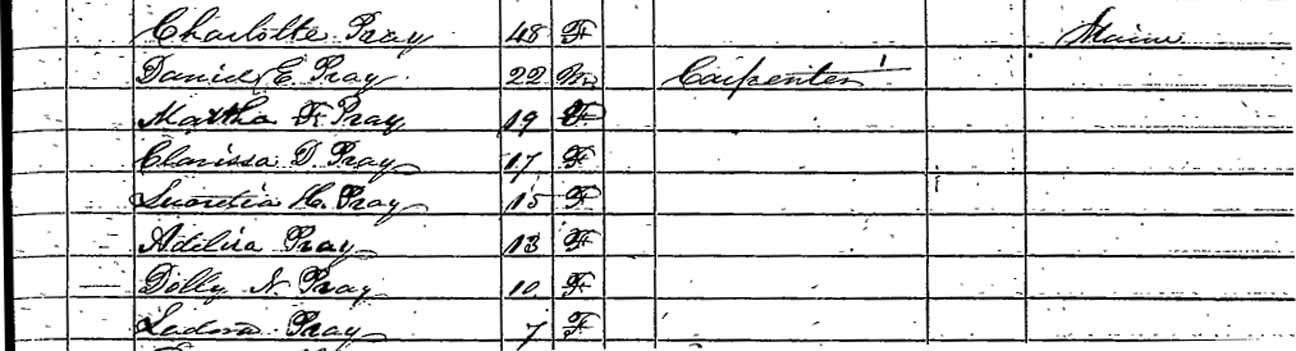 Charlotte Pray 48 F Maine
Daniel E. Pray 22 M Carpenter
Martha F. Pray 19 F
Clarissa D. Pray 17 F
Lucretia H. Pray 15 F
Adelira Pray 13 F
Dolly N. Pray 10 F
Ladora Pray 7 F